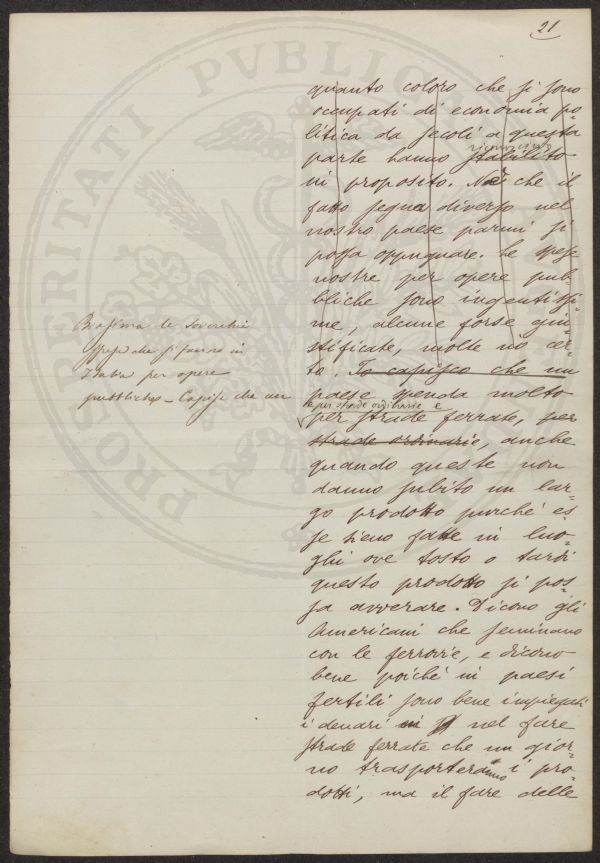 21
quanto coloro che si sono
occupati di economia po=
litica da secoli a questa
riconosciuto
parte hanno stabilito
in proposito. Nè che il
fatto segua diverso nel
nostro paese parmi si
possa oppugnare. Le spese
nostre per opere pub=
bliche sono ingentissi=
me, alcune forse giu=
stificate, molte nò cer=
to. Io capisco che un
paese spenda molto
per strade ordinarie e
per strade ferrate, per
strade ordinarie, anche
quando queste non
danno subito un lar=
go prodotto purché es=
se sieno fatte in luo=
ghi ove tosto o tardi
questo prodotto si pos=
sa avverare. Dicono gli
Americani che seminano
con le ferrovie, e dicono
bene poiché in paesi
fertili sono bene impiegati
i denari in nel fare
strade ferrate che un gior=
no trasporteranno i pro=
dotti, ma il fare delle
Biasima le soverchie
spese che si fanno in
Italia per opere
pubbliche – Capisce che un
PROPERITATI PVBLICAE